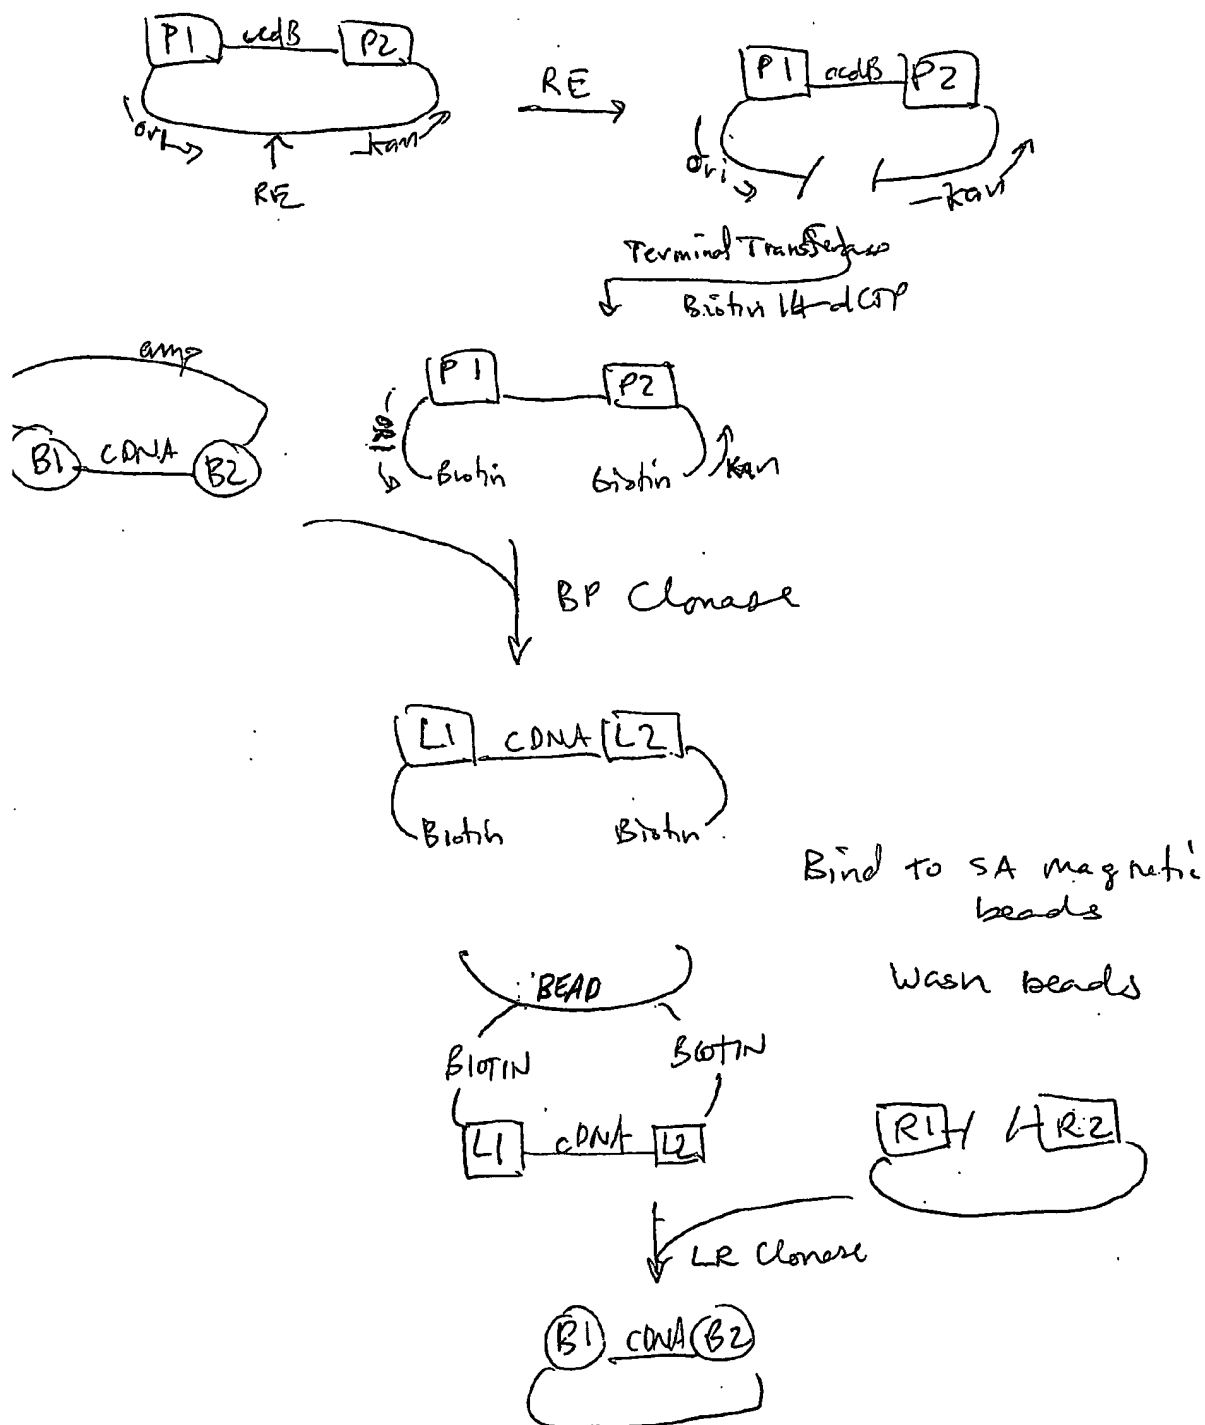 P1 ccdB P2
ori kan
RE
RE
P1 ccdB P2
ori kan
Terminal Transferase
Biotin 14-dCTP
amp
B1 CDNA B2
P1 P2
ORI Biotin Biotin Kan
BP Clonase
L1 CDNA L2
Biotin Biotin
Bind to SA magnetic
beads
Wash beads
BEAD
BIOTIN BIOTIN
L1 cDNA L2
R1 R2
LR Clonase
B1 CDNA B2